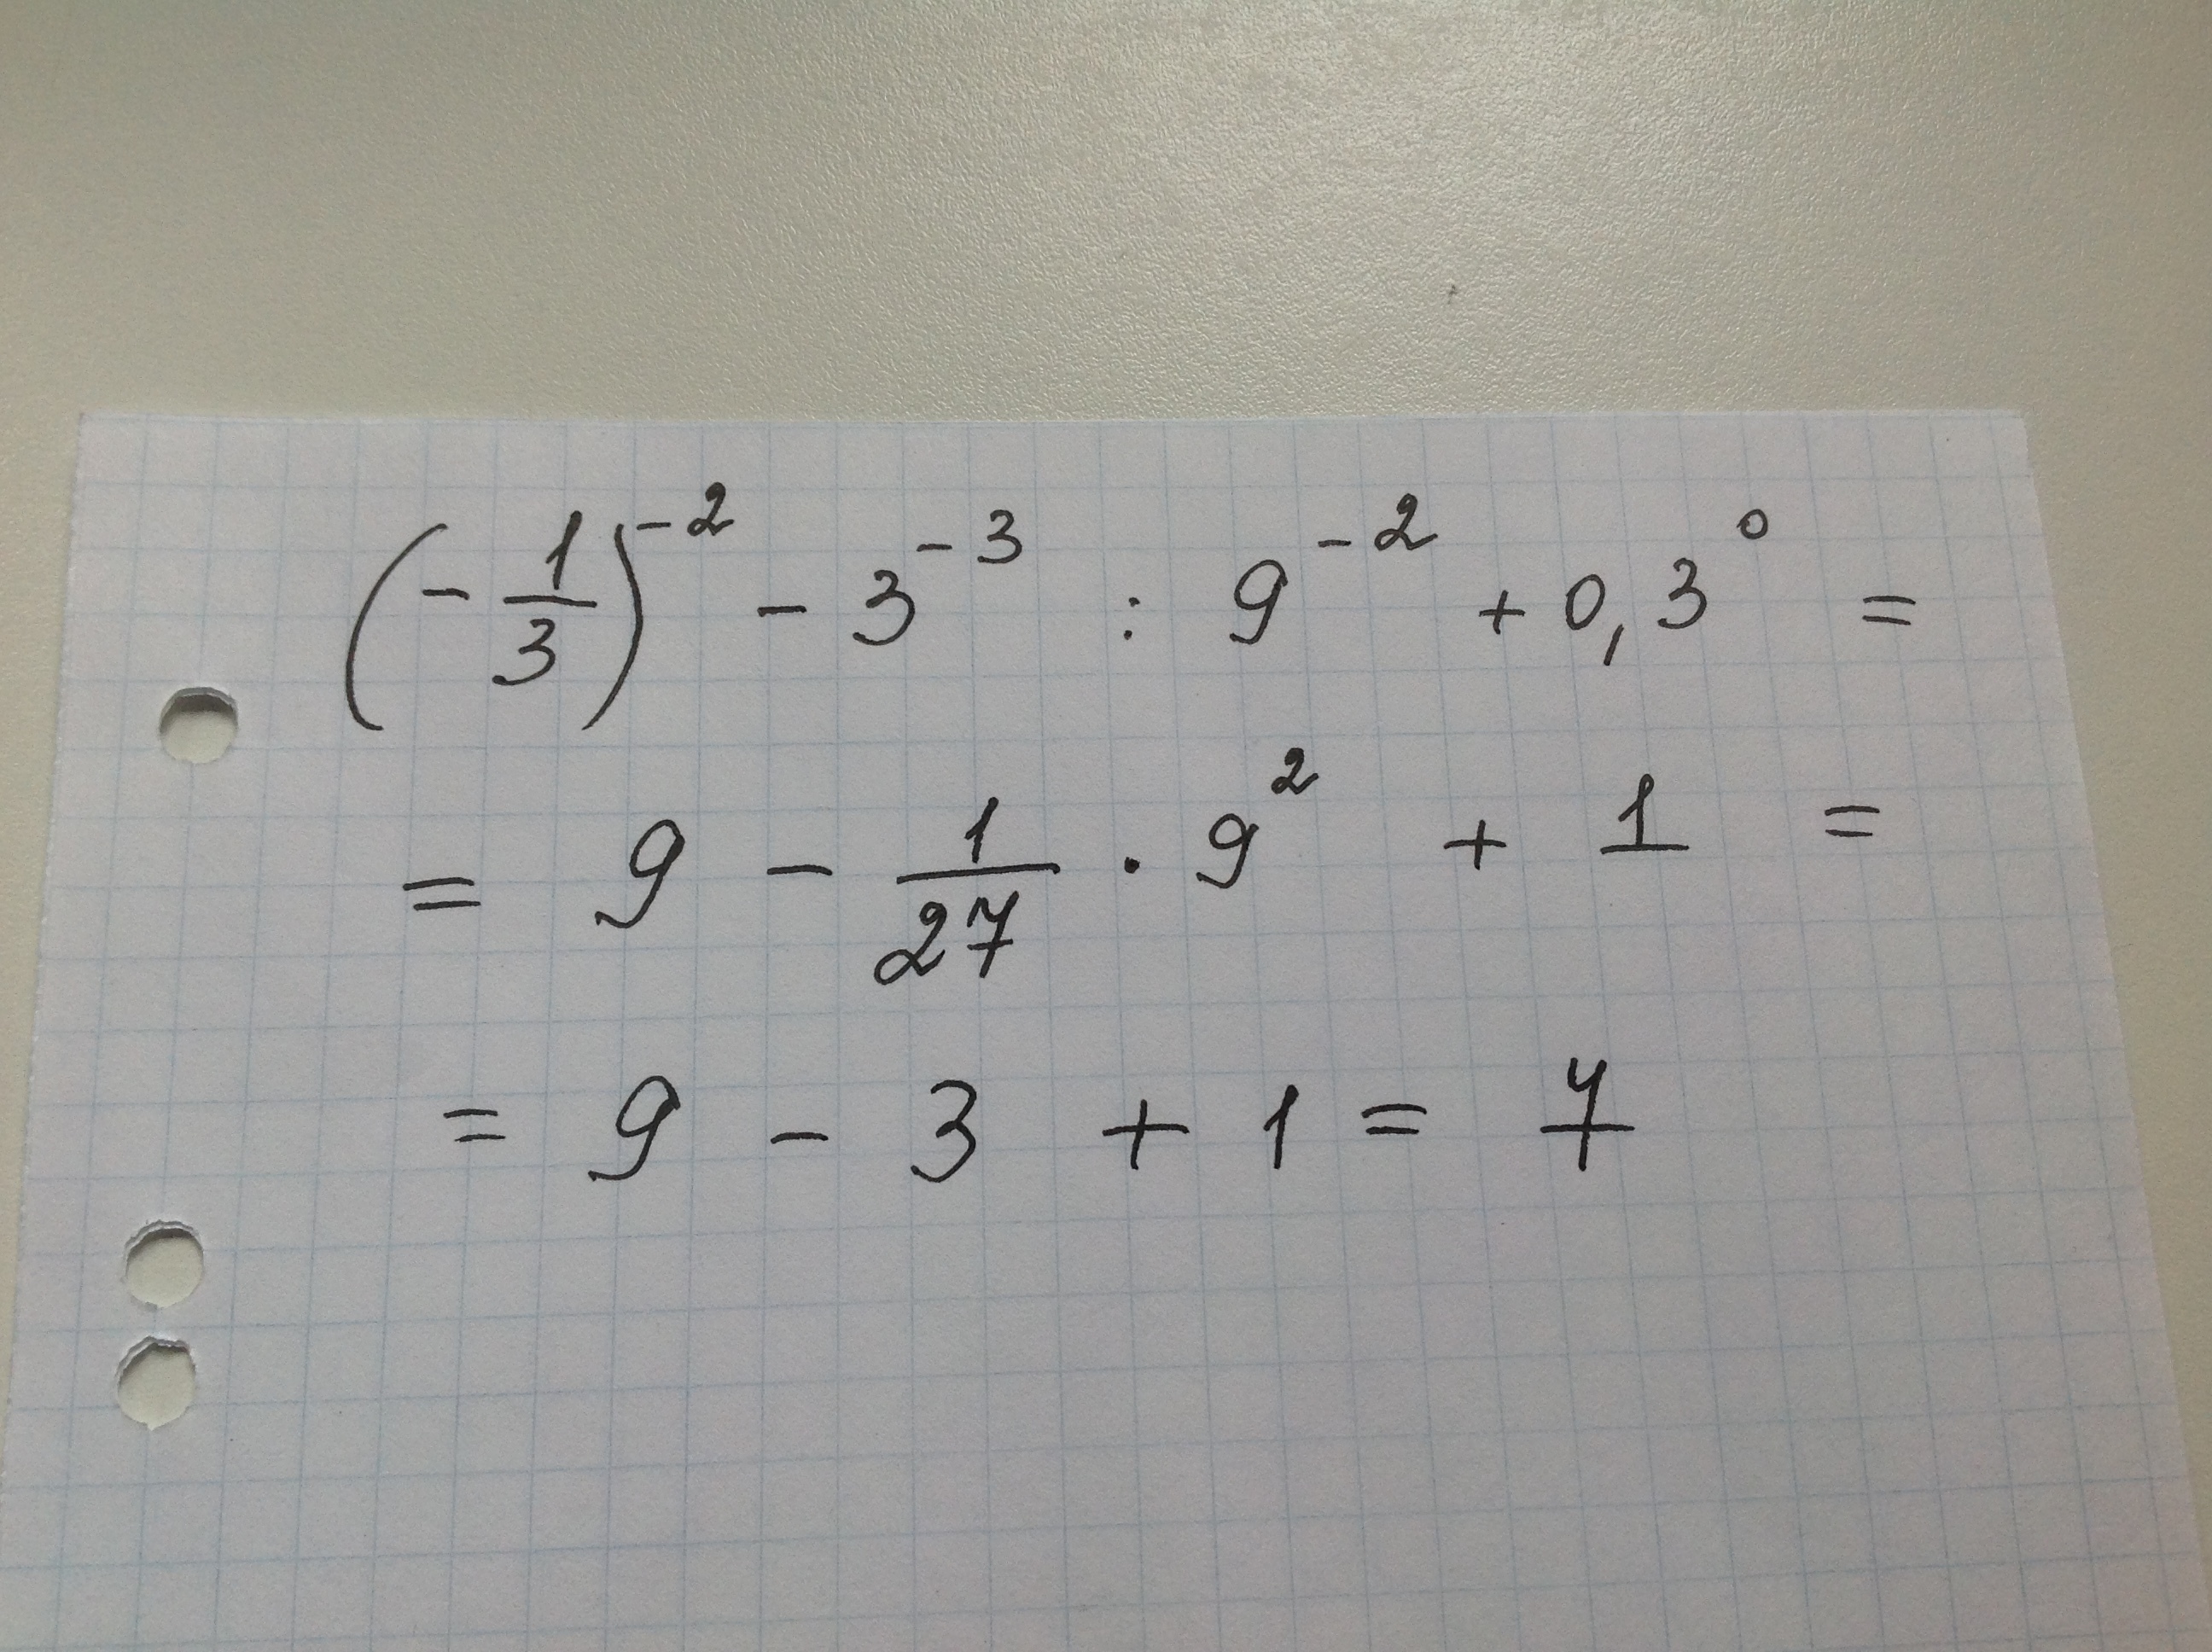 (-1/3)^-2 - 3^-3 : 9^-2 + 0,3^0 =
= 9 - 1/27 · 9^2 + 1 =
= 9 - 3 + 1 = 7